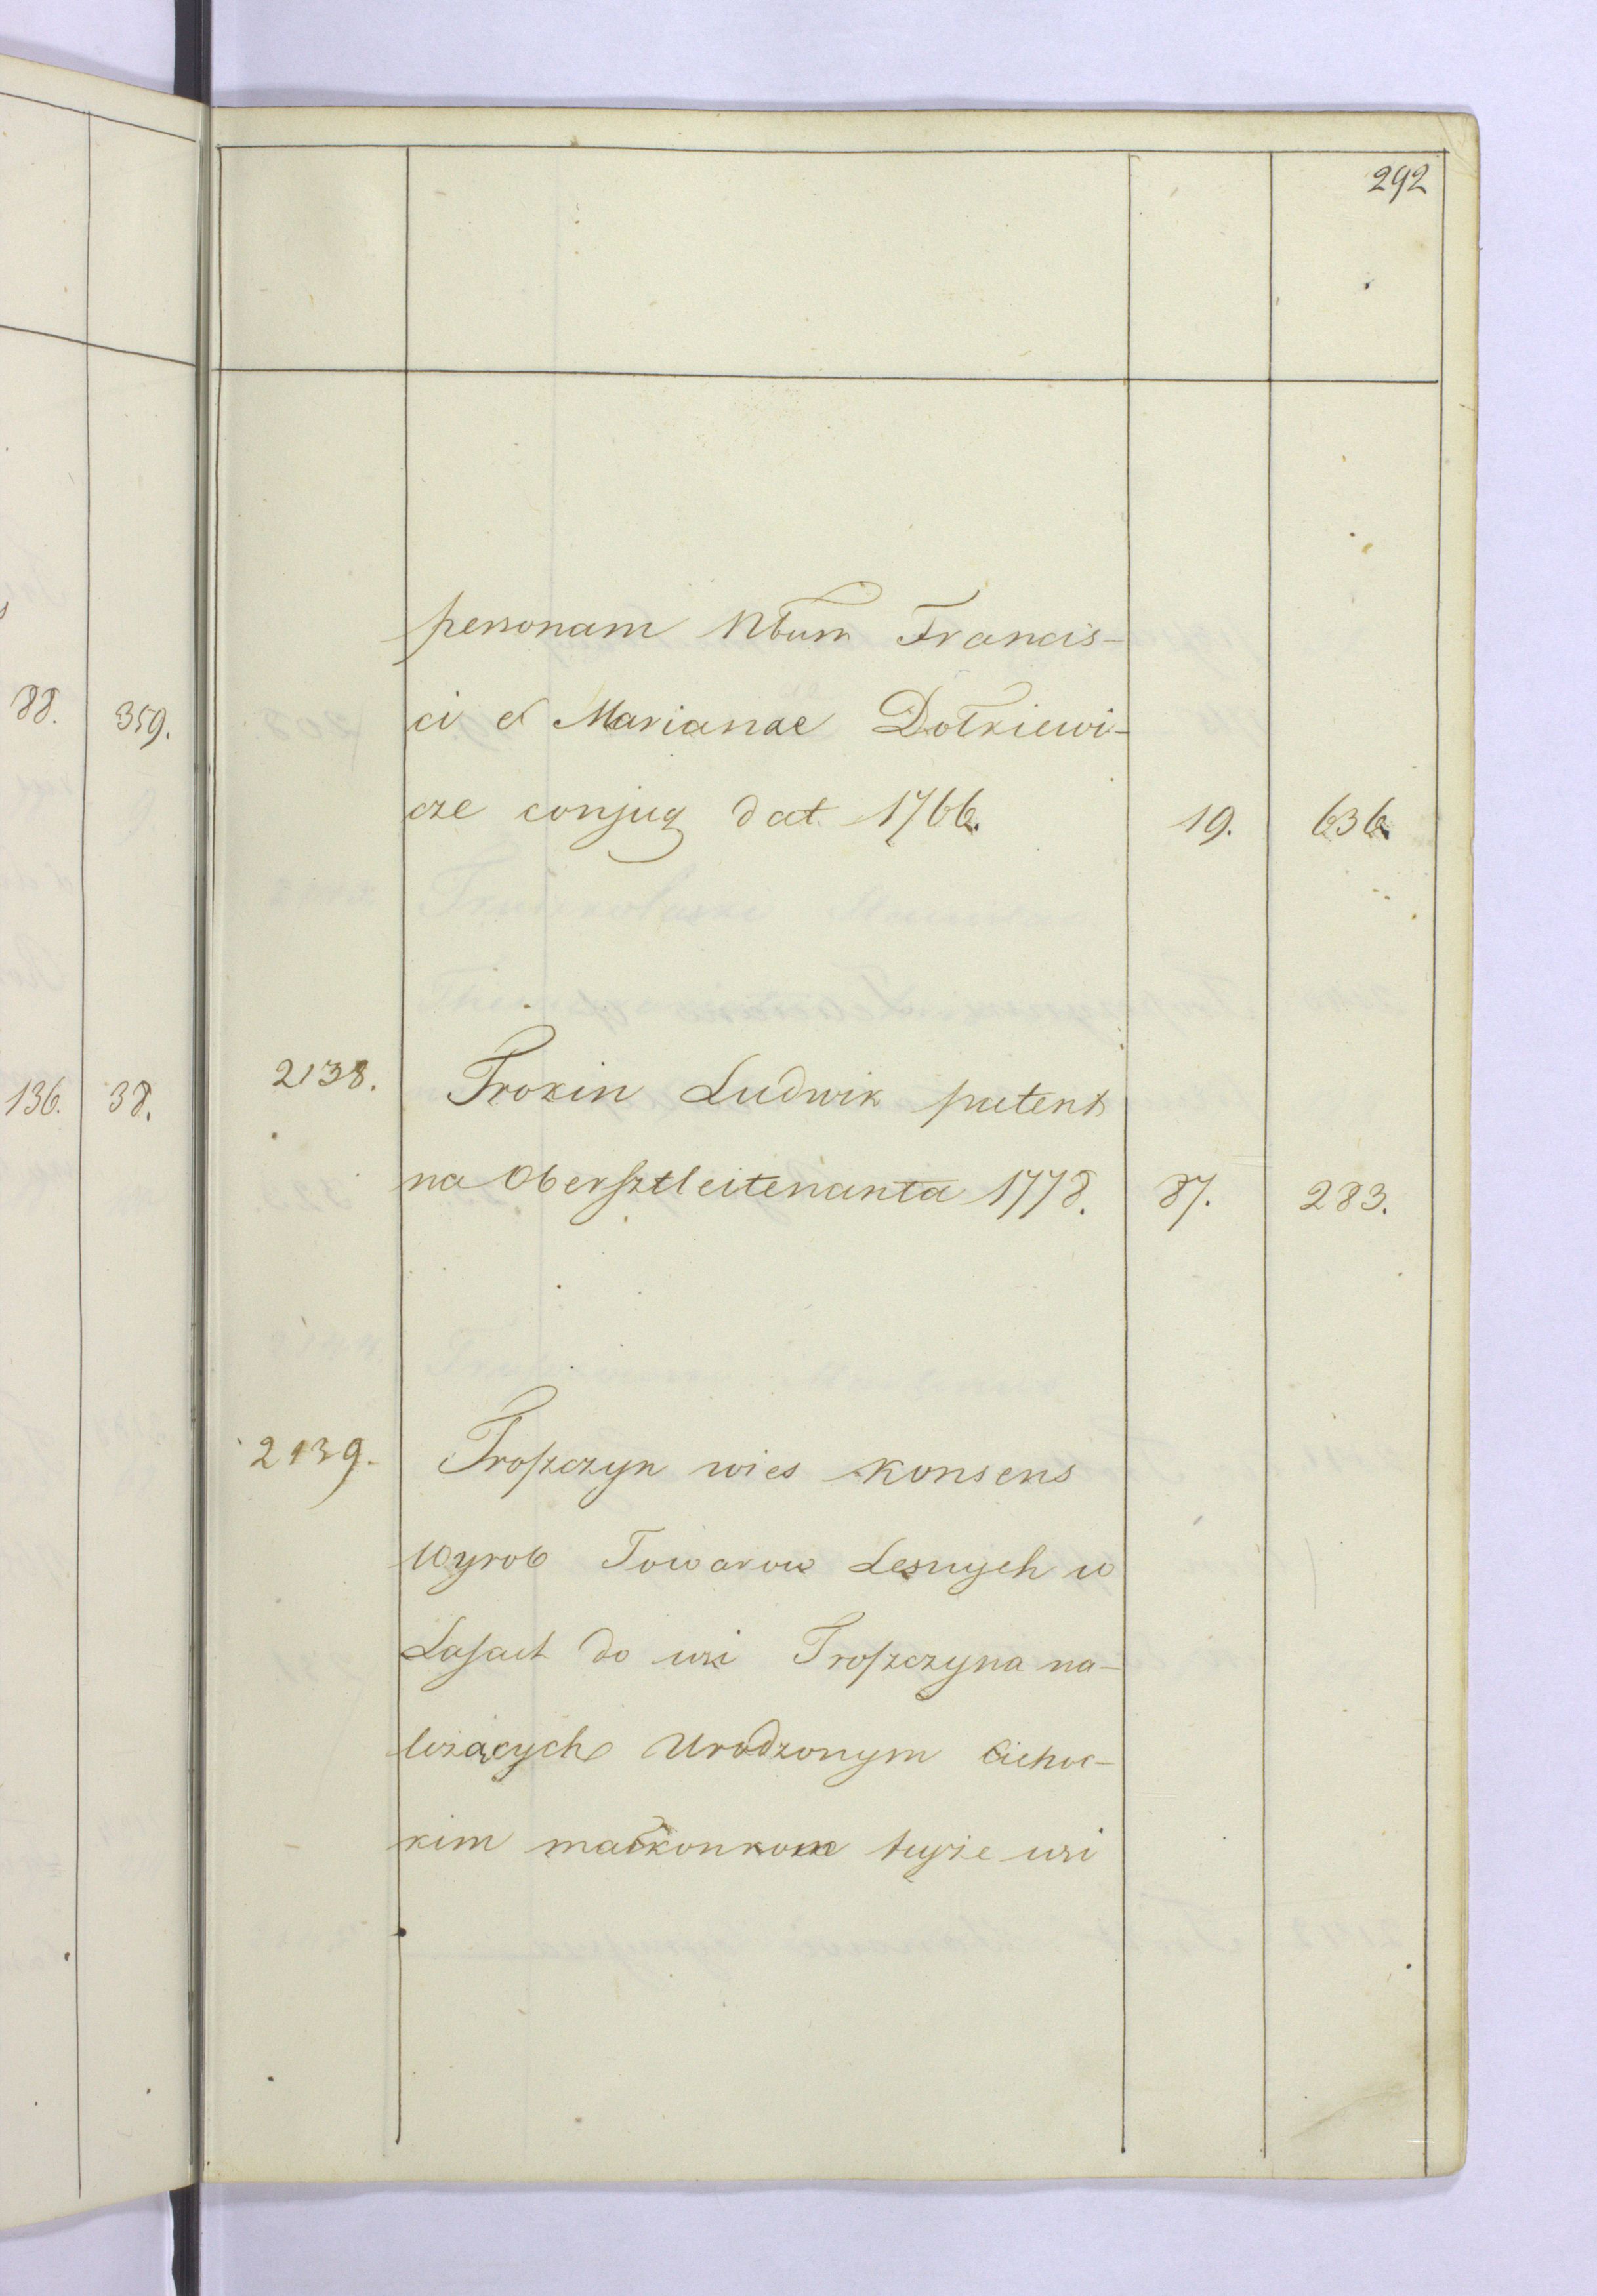 292
personam Nbum Francis-
88. 359. ci et Marianae Dołkiewi-
cze conjug dat 1766. 19. 636
136. 38. 2138. Trokin Ludwik patent
na Obersztleitenanta 1778. 87. 283.
2139. Troszczyn wies konsens
Wyrob Towarow Lesnych w
Lasach do wsi Troszczyna na-
leżących Urodzonym Cichoc-
kim małkonkom teyże wsi